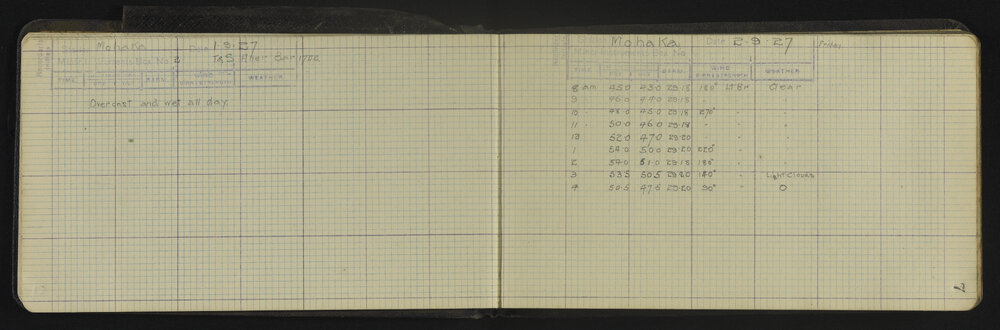 Mohaka Date 1-9-27
No. 2 T&S Alier Bar
TIME BARM. WIND WEATHER
Overcast and wet all day.
Mohaka Date 2-9-27 Friday
TIME BARM. WIND DIRN & STRENGTH WEATHER
8 am 45.0 43.0 29.18 180° Lt Br Clear
9 " 46.0 44.0 29.18 " " "
10 " 48.0 45.0 29.18 270° " "
11 " 50.0 46.0 29.18 " " "
12 52.0 47.0 29.20 " " "
1 54.0 50.0 29.20 220° " "
2 54.0 51.0 29.18 180° " "
3 53.5 50.5 29.20 140° " Light Clouds
4 50.5 47.5 29.20 90° " O
7